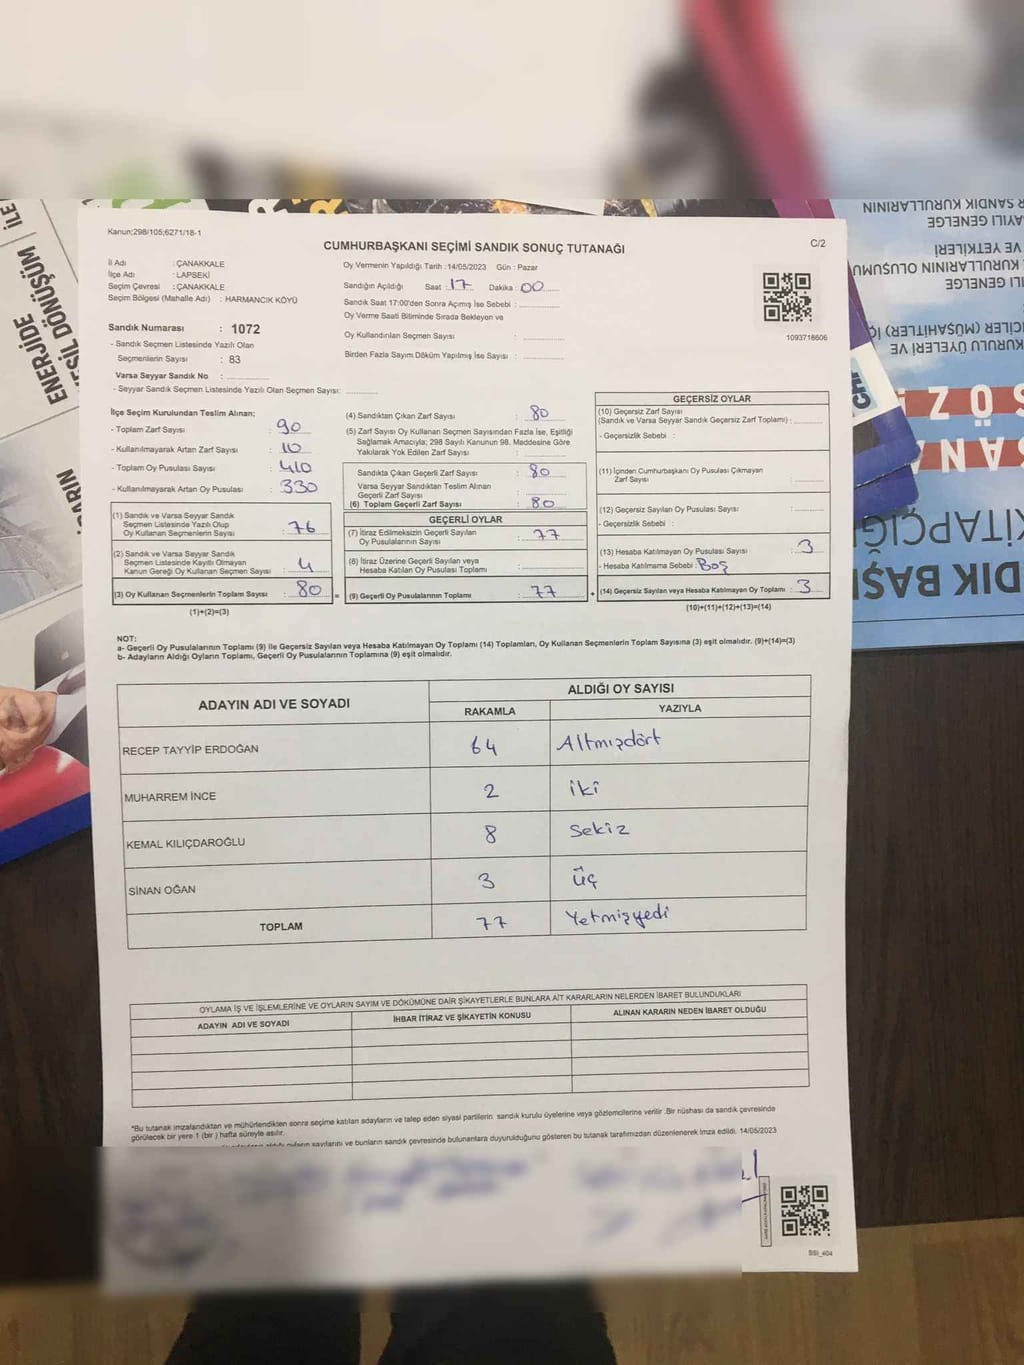 Kanun;298/105;6271/18-1
CUMHURBAŞKANI SEÇİMİ SANDIK SONUÇ TUTANAĞI
C/2
İl Adı : ÇANAKKALE
İlçe Adı : LAPSEKİ
Seçim Çevresi : ÇANAKKALE
Seçim Bölgesi (Mahalle Adı) : HARMANCIK KÖYÜ
Sandık Numarası : 1072
- Sandık Seçmen Listesinde Yazılı Olan
Seçmenlerin Sayısı : 83
Varsa Seyyar Sandık No :
- Seyyar Sandık Seçmen Listesinde Yazılı Olan Seçmen Sayısı:
Oy Vermenin Yapıldığı Tarih : 14/05/2023 Gün : Pazar
Sandığın Açıldığı Saat : 17 Dakika : 00
Sandık Saat 17:00'den Sonra Açımış İse Sebebi :
Oy Verme Saati Bitiminde Sırada Bekleyen ve
Oy Kullandırılan Seçmen Sayısı :
Birden Fazla Sayım Döküm Yapılmış İse Sayısı :
1093718606
İlçe Seçim Kurulundan Teslim Alınan;
- Toplam Zarf Sayısı : 90
- Kullanılmayarak Artan Zarf Sayısı : 10
- Toplam Oy Pusulası Sayısı : 410
- Kullanılmayarak Artan Oy Pusulası : 330
(1) Sandık ve Varsa Seyyar Sandık
Seçmen Listesinde Yazılı Olup
Oy Kullanan Seçmenlerin Sayısı : 76
(2) Sandık ve Varsa Seyyar Sandık
Seçmen Listesinde Kayıtlı Olmayan
Kanun Gereği Oy Kullanan Seçmen Sayısı : 4
(3) Oy Kullanan Seçmenlerin Toplam Sayısı : 80
(1)+(2)=(3)
(4) Sandıktan Çıkan Zarf Sayısı : 80
(5) Zarf Sayısı Oy Kullanan Seçmen Sayısından Fazla İse, Eşitliği
Sağlamak Amacıyla; 298 Sayılı Kanunun 98. Maddesine Göre
Yakılarak Yok Edilen Zarf Sayısı :
Sandıkta Çıkan Geçerli Zarf Sayısı : 80
Varsa Seyyar Sandıktan Teslim Alınan
Geçerli Zarf Sayısı :
(6) Toplam Geçerli Zarf Sayısı : 80
GEÇERLİ OYLAR
(7) İtiraz Edilmeksizin Geçerli Sayılan
Oy Pusulalarının Sayısı : 77
(8) İtiraz Üzerine Geçerli Sayılan veya
Hesaba Katılan Oy Pusulası Toplamı :
= (9) Geçerli Oy Pusulalarının Toplamı : 77 +
GEÇERSİZ OYLAR
(10) Geçersiz Zarf Sayısı
(Sandık ve Varsa Seyyar Sandık Geçersiz Zarf Toplamı) :
- Geçersizlik Sebebi :
(11) İçinden Cumhurbaşkanı Oy Pusulası Çıkmayan
Zarf Sayısı :
(12) Geçersiz Sayılan Oy Pusulası Sayısı :
- Geçersizlik Sebebi :
(13) Hesaba Katılmayan Oy Pusulası Sayısı : 3
- Hesaba Katılmama Sebebi : Boş
(14) Geçersiz Sayılan veya Hesaba Katılmayan Oy Toplamı : 3
(10)+(11)+(12)+(13)=(14)
NOT:
a- Geçerli Oy Pusulalarının Toplamı (9) ile Geçersiz Sayılan veya Hesaba Katılmayan Oy Toplamı (14) Toplamları, Oy Kullanan Seçmenlerin Toplam Sayısına (3) eşit olmalıdır. (9)+(14)=(3)
b- Adayların Aldığı Oyların Toplamı, Geçerli Oy Pusulalarının Toplamına (9) eşit olmalıdır.
ADAYIN ADI VE SOYADI
ALDIĞI OY SAYISI
RAKAMLA YAZIYLA
RECEP TAYYİP ERDOĞAN 64 Altmışdört
MUHARREM İNCE 2 iki
KEMAL KILIÇDAROĞLU 8 Sekiz
SİNAN OĞAN 3 üç
TOPLAM 77 Yetmişyedi
OYLAMA İŞ VE İŞLEMLERİNE VE OYLARIN SAYIM VE DÖKÜMÜNE DAİR ŞİKAYETLERLE BUNLARA AİT KARARLARIN NELERDEN İBARET BULUNDUKLARI
ADAYIN ADI VE SOYADI İHBAR İTİRAZ VE ŞİKAYETİN KONUSU ALINAN KARARIN NEDEN İBARET OLDUĞU
*Bu tutanak imzalandıktan ve mühürlendikten sonra seçime katılan adayların ve talep eden siyasi partilerin sandık kurulu üyelerine veya gözlemcilerine verilir .Bir nüshası da sandık çevresinde
görülecek bir yere 1 (bir ) hafta süreyle asılır.
sayılarını ve bunların sandık çevresinde bulunanlara duyurulduğunu gösteren bu tutanak tarafımızdan düzenlenerek imza edildi. 14/05/2023
SSI_404
İLE
ENERJİDE
YEŞİL DÖNÜŞÜM
SANDIK KURULLARININ
SAYILI GENELGE
VE YETKİLERİ
KURULLARININ OLUŞUMU
GENELGE
KURULU ÜYELERİ VE
KİTAPÇIĞI